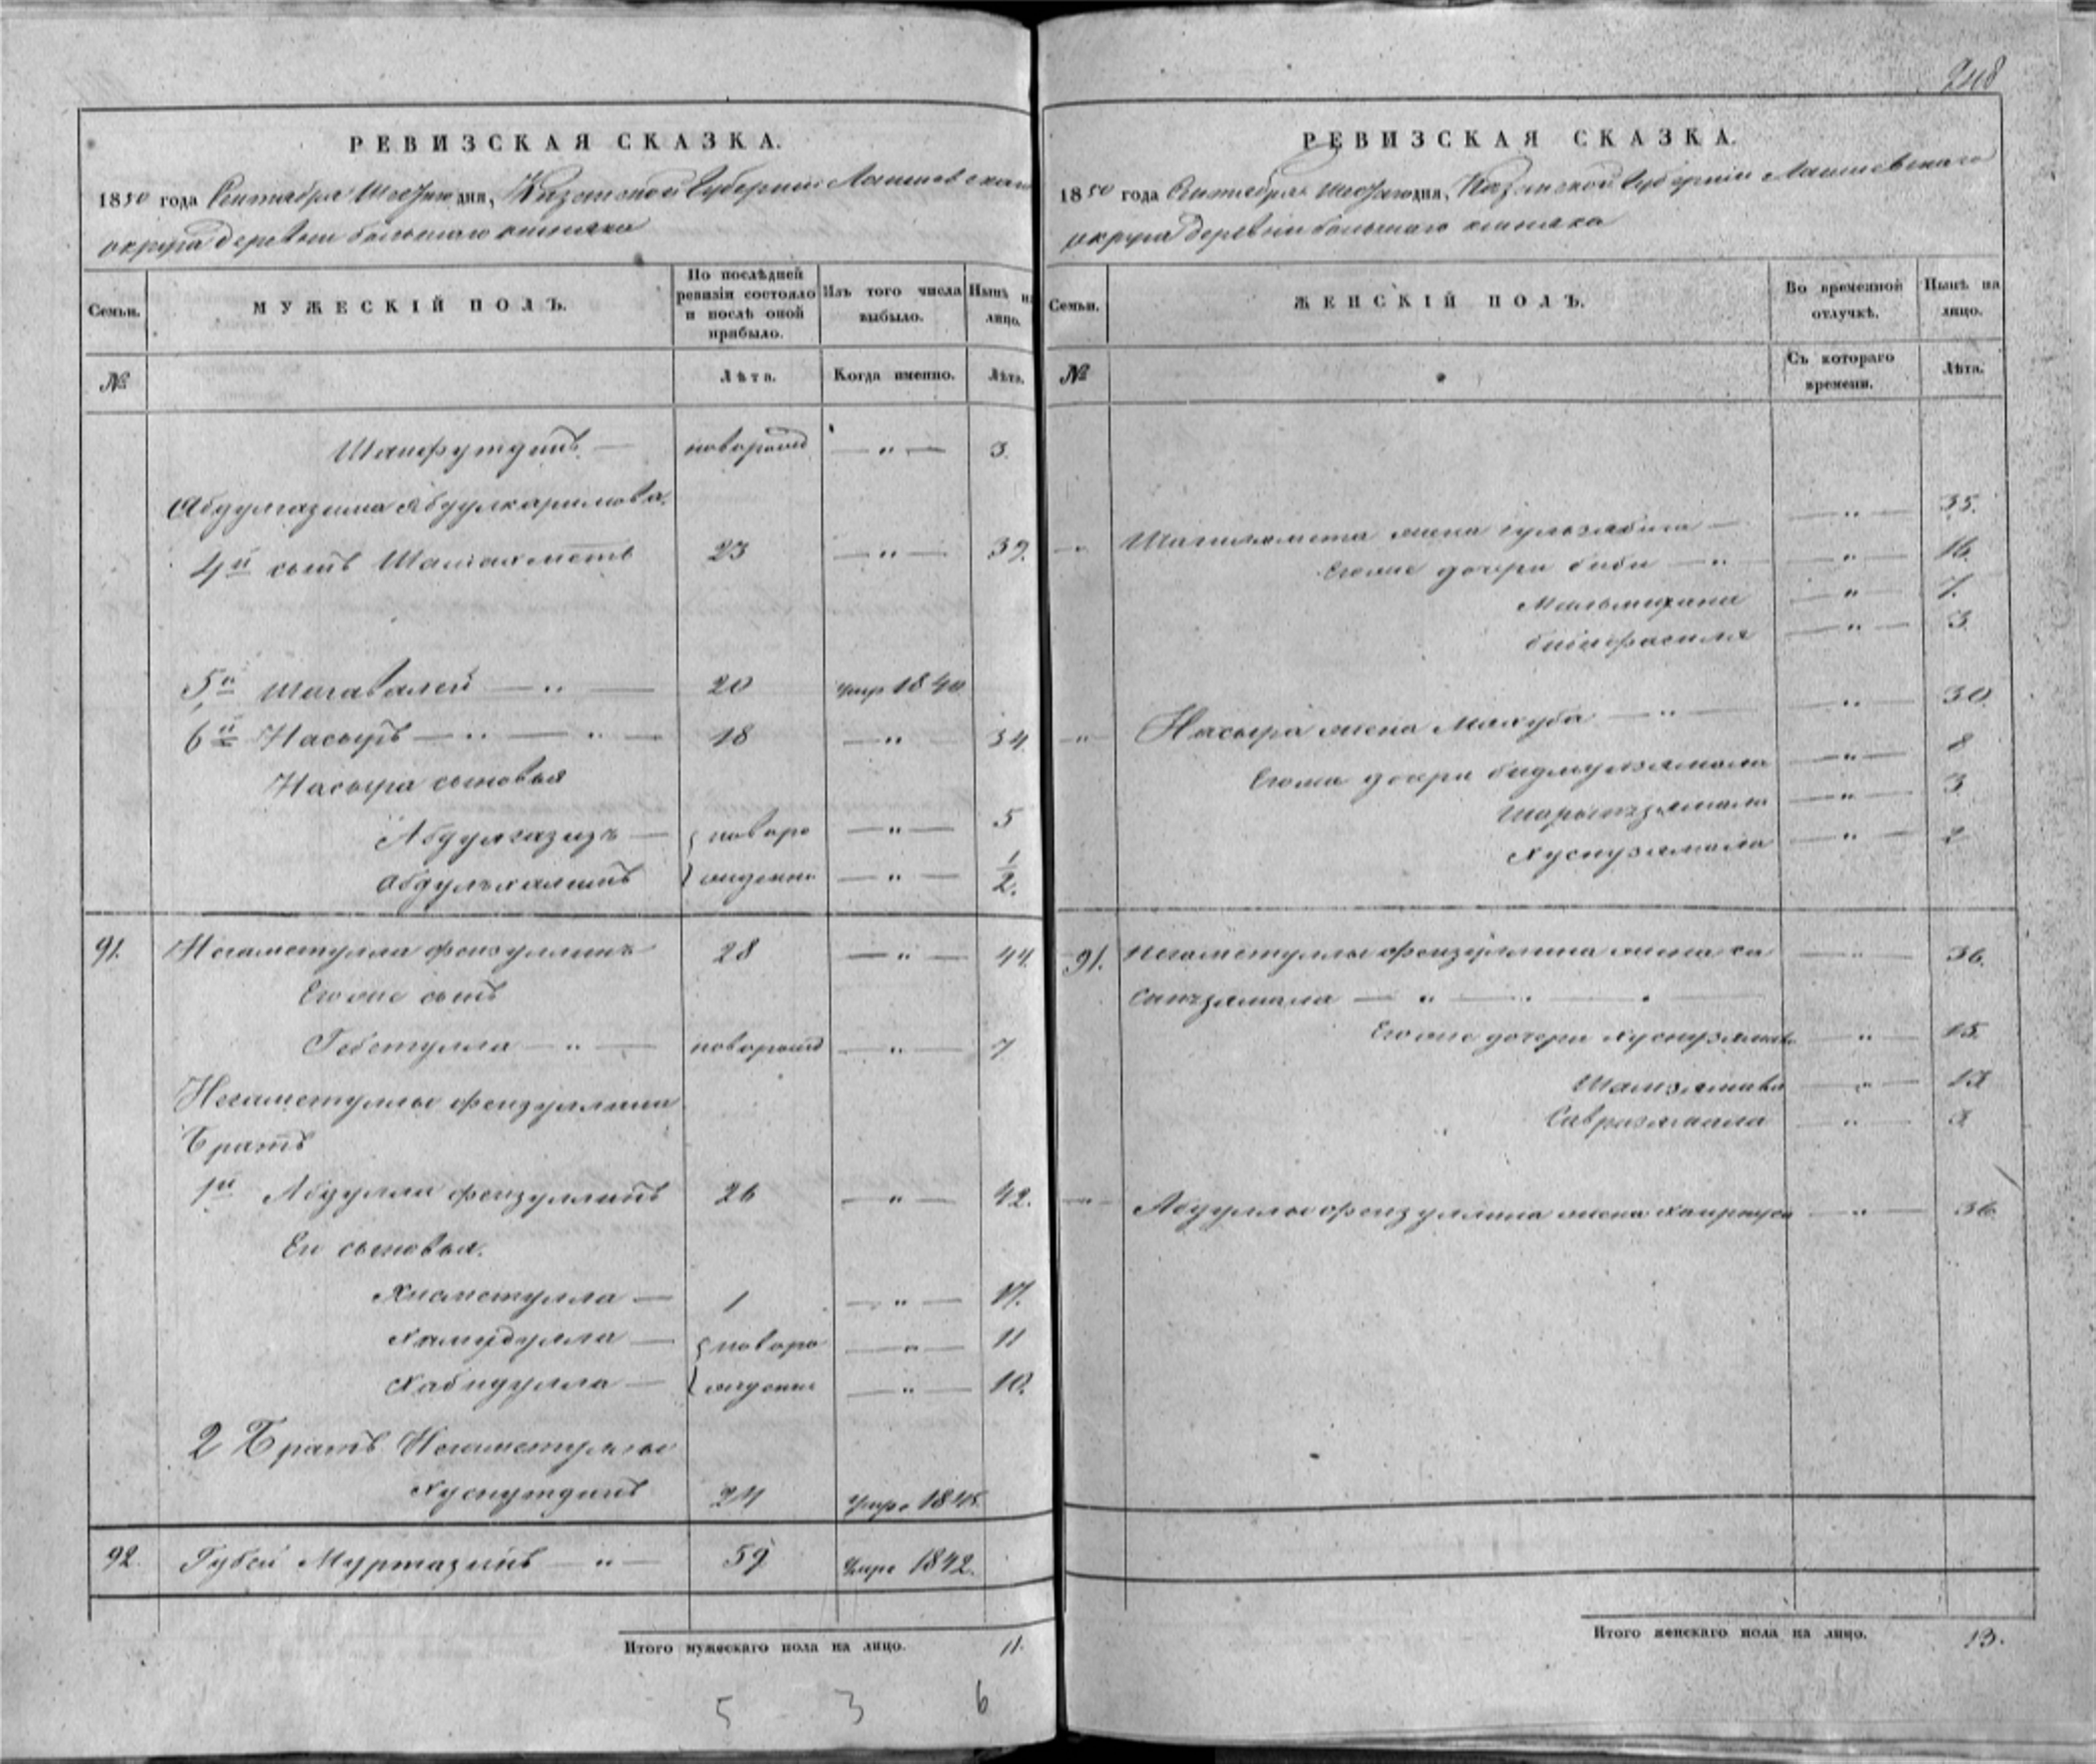 РЕВИЗСКАЯ СКАЗКА.
1850 года Сентября дня, Казанской Губернии Лаишевскаго
округа деревни большаго
Семьи.
МУЖЕСКІЙ ПОЛЪ.
По послѣдней ревизіи состояло и послѣ оной прибыло.
Изъ того числа выбыло.
Нынѣ на лицо.
№
Лѣта.
Когда именно.
Лѣта.
новорожд — " — 3.
Абдулгазима Абдулкаримова.
4й сынъ Шагиахметъ 23 — " — 39.
5й Шагавалей — " — 20 умръ 1840
6й Насыръ — " — " — 18 — " — 34.
Насыра сыновья
Абдулгазизъ — новоро — " — 5
Абдулхалимъ жденные — " — 1/2.
91. Негаметулла Фейзуллинъ 28 — " — 44.
Его же сынъ
Гебетулла — " — новорожд — " — 7
Негаметуллы Фейзуллина
Братъ
1й Абдулла Фейзуллинъ 26 — " — 42.
Ево сыновья.
Хисметулла — 1 — " — 17.
Хамидулла — новоро — " — 11
Хабидулла — жденные — " — 10.
2 Братъ Негаметуллы
Хуснутдинъ 24 умре
92. Губей Муртазинъ — " — 59 умре 1842.
Итого мужескаго пола на лицо. 11.
5 3 6
248
РЕВИЗСКАЯ СКАЗКА.
1850 года Сентября дня, Казанской Губернии Лаишевскаго
округа деревни большаго
Семьи.
ЖЕНСКІЙ ПОЛЪ.
Во временной отлучкѣ.
Нынѣ на лицо.
№
Съ котораго времени.
Лѣта.
— " Шагиахмета жена — — " — 35.
Его же дочери Биби — " — " — 16.
— " — 7.
— " — 3.
— " Насыра жена Махуба — " — — " — 30
Его же дочери — " — 8
— " — 3
Хуснузямала — " — 2
91. Негаметуллы Фейзуллина жена — " — 36.
— " — " — "
Его же дочери Хуснузямал — " — 15.
— " — 12
— " — 2
— " Абдуллы Фейзуллина жена — " — 36
Итого женскаго пола на лицо. 13.